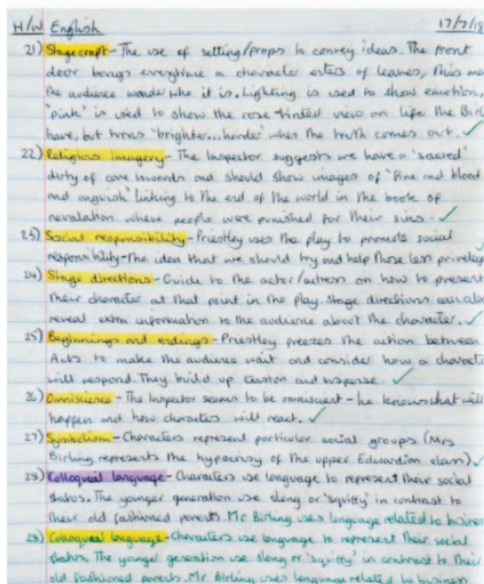 H/W English 17/7/18
21) Stagecraft - The use of setting/props to convey ideas. The front
door bangs everytime a character enters of leaves, this
the audience wonder who it is. Lighting is used to show emotion,
'pink' is used to show the rose-tinted view on life the
have, but turns 'brighter...harder' when the truth comes out. ✓
22) Religious imagery - The Inspector suggests we have a 'sacred'
duty of care towards and should show images of 'fire and blood
and anguish' linking to the end of the world in the book of
revalation where people were punished for their sins. ✓
23) Social responsibility - Priestley uses the play to promote social
responsibility - the idea that we should try and help those less
24) Stage directions - Guide to the actor/actress on how to present
their character at that point in the play. Stage directions can
reveal extra information to the audience about the character. ✓
25) Beginnings and endings - Priestley freezes the action between
Acts to make the audience wait and consider how a
will respond. They build up and suspense. ✓
26) Omniscience - The Inspector seems to be omniscient - he knows what will
happen and how characters will react. ✓
27) Symbolism - Characters represent particular social groups (Mrs
Birling represents the hypocrisy of the upper Edwardian class) ✓
28) Colloqueal language - Characters use language to represent their social
status. The younger generation use slang or 'squiffy' in contrast to
their old fashioned parents. Mr Birling uses language related to
28) Colloqueal language - Characters use language to represent their social
status. The younger generation use slang or 'squiffy' in contrast to their
old fashioned parents. Mr Birling uses language related to business